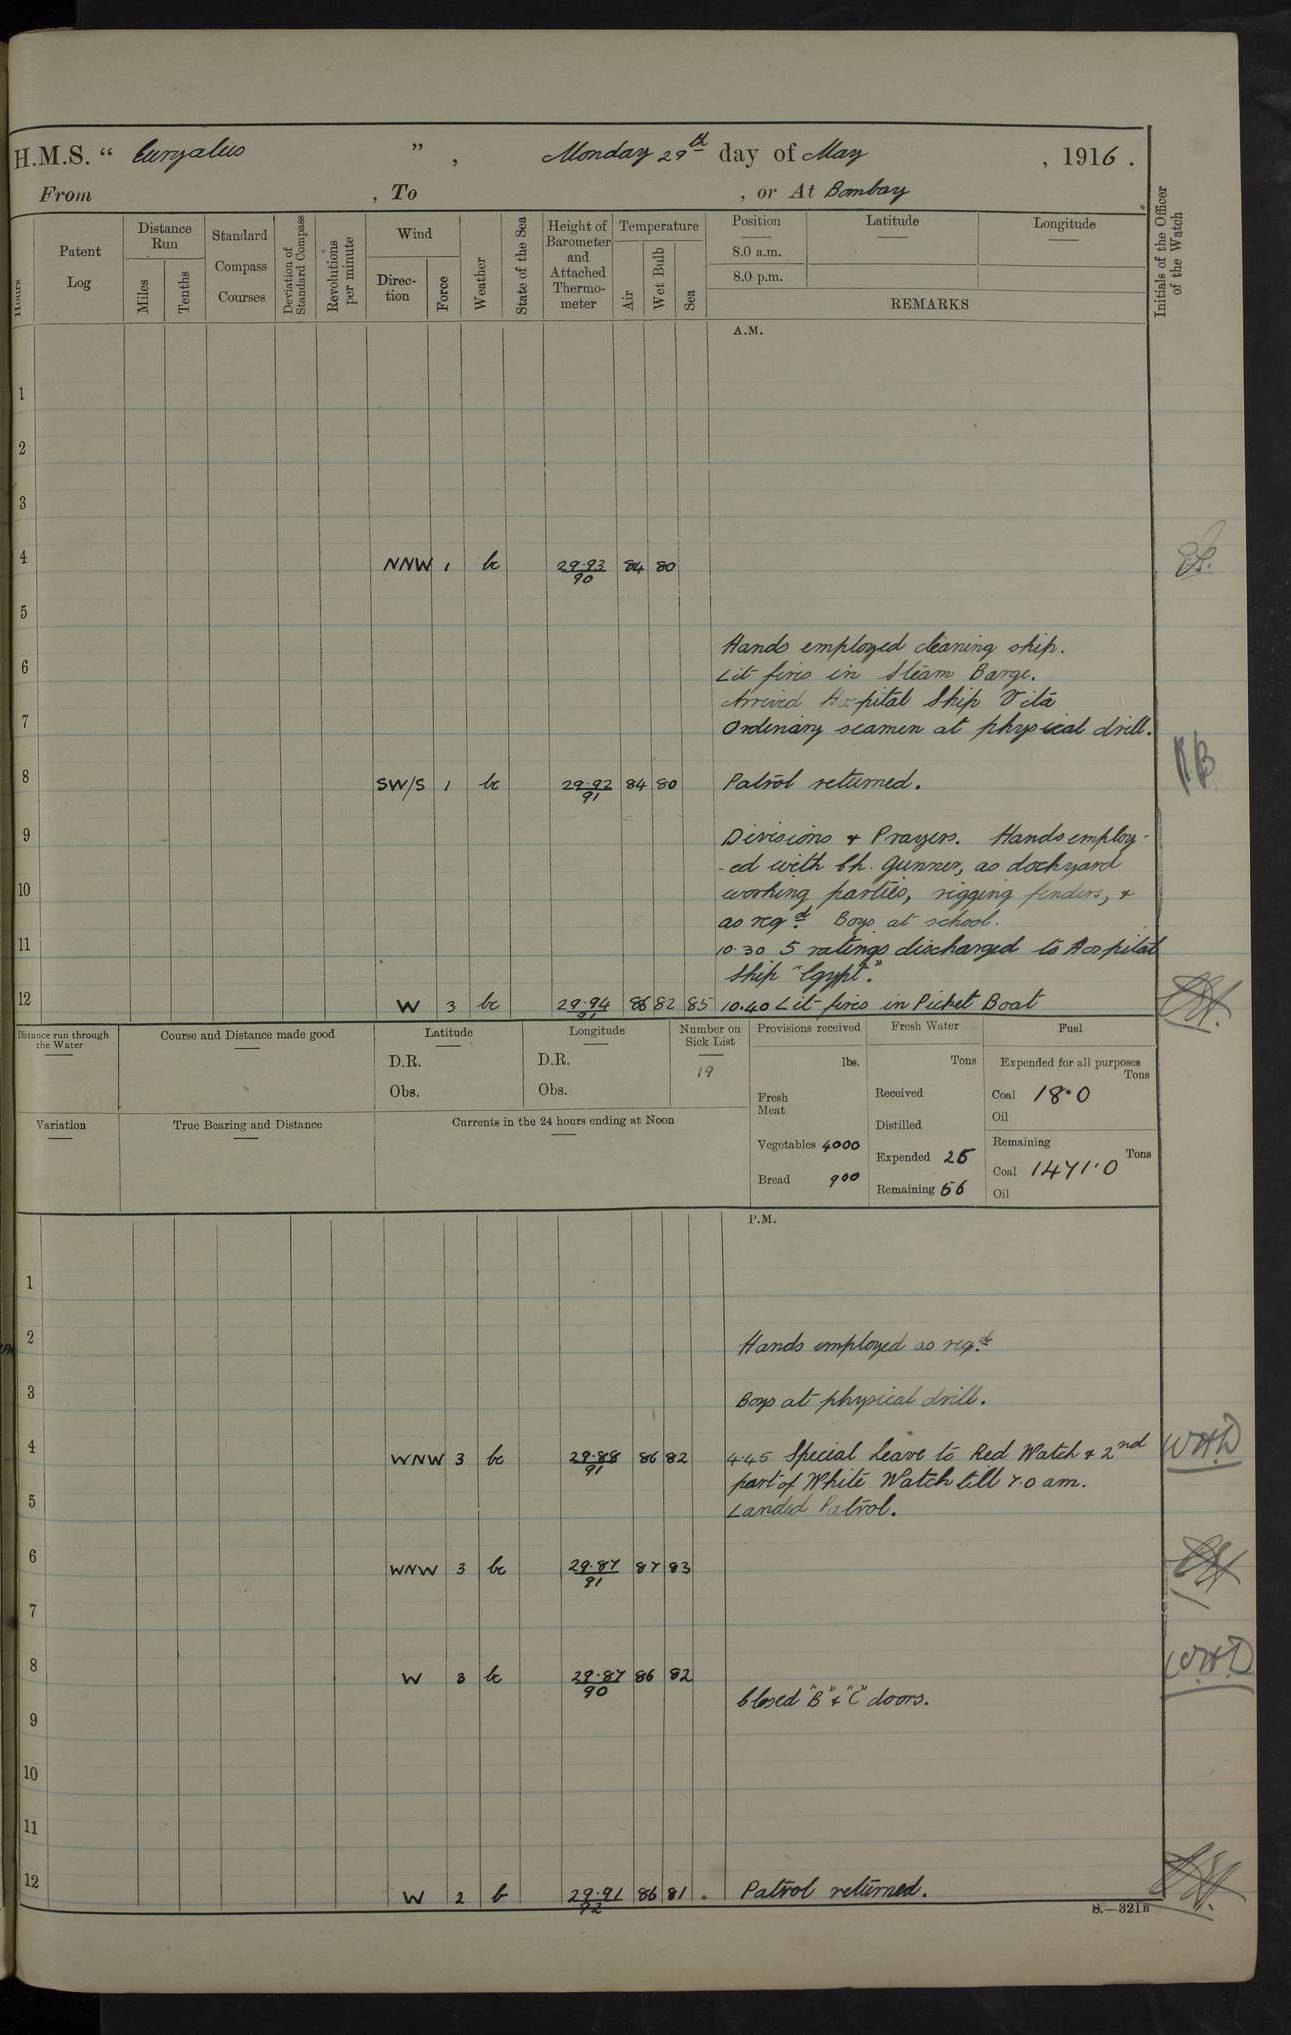 H.M.S. “ Euryalus ” , Monday 29th day of May , 1916 .
From , To , or At Bombay
Hours
Patent Log
Distance Run
Miles
Tenths
Standard Compass Courses
Deviation of Standard Compass
Revolutions per minute
Wind
Direc-tion
Force
Weather
State of the Sea
Height of Barometer and Attached Thermo-meter
Temperature
Air
Wet Bulb
Sea
Position
8.0 a.m.
8.0 p.m.
Latitude
Longitude
REMARKS
Initials of the Officer of the Watch
A.M.
1
2
3
4 NNW 1 bc 29·93 84 80
90
5
Hands employed cleaning ship.
6
Lit fires in Steam Barge.
Arrived Hospital Ship Vita
7
Ordinary seamen at physical drill.
8 SW/S 1 bc 29·92 84 80 Patrol returned.
91
9 Divisions & Prayers. Hands employ-
-ed with Ch. Gunner, as dockyard
10 working parties, rigging fenders, &
as reqd. Boys at school.
11 10·30 5 ratings discharged to Hospital
Ship "Egypt".
12 W 3 bc 29·94 86 82 85 10·40 Lit fires in Picket Boat
91
Distance run through the Water
Course and Distance made good
Latitude
D.R.
Obs.
Longitude
D.R.
Obs.
Number on Sick List
19
Provisions received
lbs.
Fresh Meat
Vegetables 4000
Bread 900
Fresh Water
Tons
Received
Distilled
Expended 25
Remaining 56
Fuel
Expended for all purposes
Tons
Coal 18·0
Oil
Remaining
Tons
Coal 1471·0
Oil
Variation
True Bearing and Distance
Currents in the 24 hours ending at Noon
P.M.
1
2 Hands employed as reqd.
3 Boys at physical drill.
4 WNW 3 bc 29·88 86 82 4·45 Special Leave to Red Watch & 2nd WHD
91
part of White Watch till 7·0 am.
5 Landed Patrol.
6 WNW 3 bc 29·87 87 83
91
7
8 W 3 bc 29·87 86 82 WHD
90
Closed "B" & "C" doors.
9
10
11
12 W 2 b 29·91 86 81 . Patrol returned.
92
S.—321B